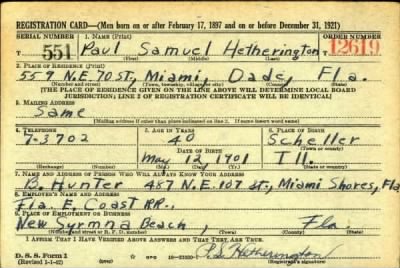 REGISTRATION CARD—(Men born on or after February 17, 1897 and on or before December 31, 1921)
SERIAL NUMBER 1. NAME (Print) ORDER NUMBER
551 Paul Samuel Hetherington 12619
(First) (Middle) (Last)
2. PLACE OF RESIDENCE (Print)
559 N.E. 70 St., Miami, Dade, Fla.
(Number and street) (Town, township, village, or city) (County) (State)
[THE PLACE OF RESIDENCE GIVEN ON THE LINE ABOVE WILL DETERMINE LOCAL BOARD
JURISDICTION; LINE 2 OF REGISTRATION CERTIFICATE WILL BE IDENTICAL]
3. MAILING ADDRESS
Same
[Mailing address if other than place indicated on line 2. If same insert word same]
4. TELEPHONE 5. AGE IN YEARS 6. PLACE OF BIRTH
7-3702 40 Scheller
DATE OF BIRTH
May 12, 1901 Ill.
(Exchange) (Number) (Mo.) (Day) (Yr.) (State or country)
7. NAME AND ADDRESS OF PERSON WHO WILL ALWAYS KNOW YOUR ADDRESS
B. Hunter 487 N.E. 107 St., Miami Shores, Fla
8. EMPLOYER'S NAME AND ADDRESS
Fla. E. Coast RR.,
9. PLACE OF EMPLOYMENT OR BUSINESS
New Syrmna Beach, Fla.
(Number and street or R. F. D. number) (Town) (County) (State)
I AFFIRM THAT I HAVE VERIFIED ABOVE ANSWERS AND THAT THEY ARE TRUE.
D. S. S. Form 1 GPO Hetherington
(Revised 1-1-42) (over) (Registrant's signature)